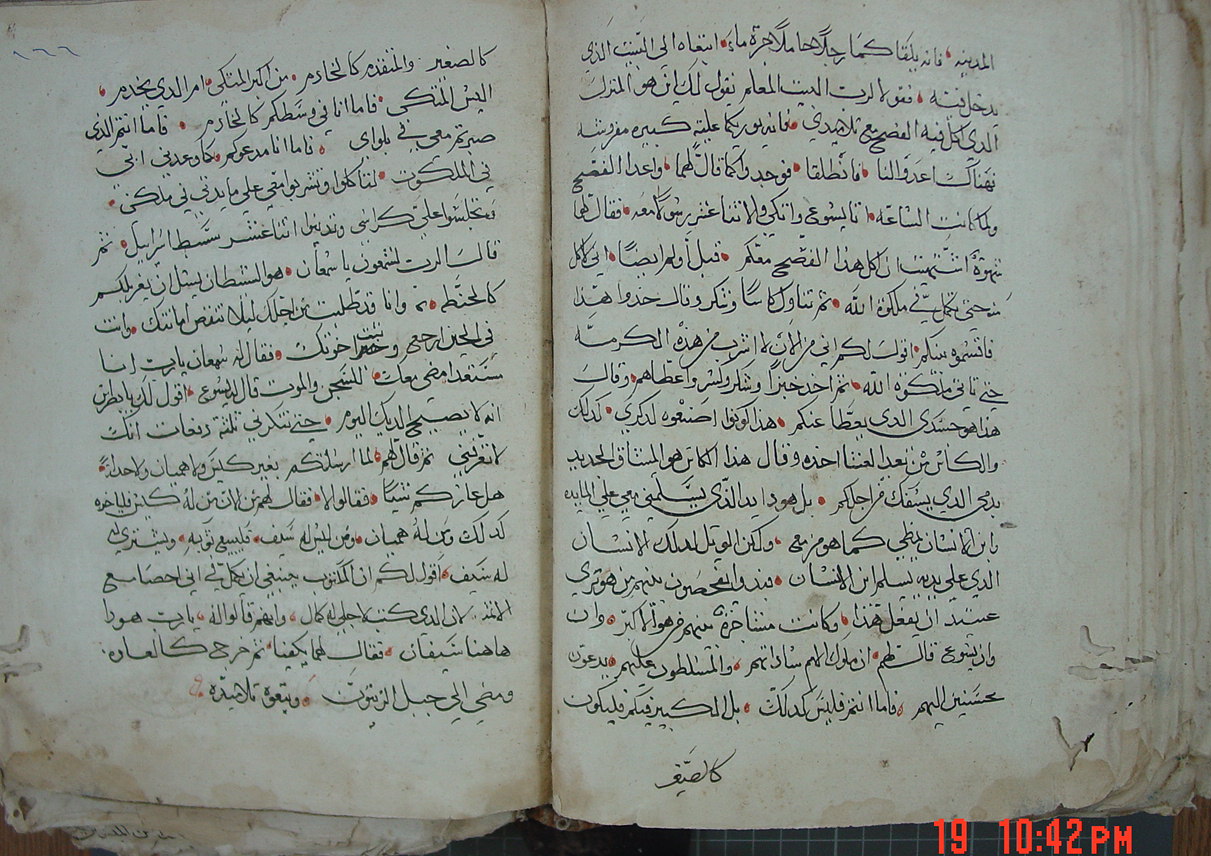 المدينه فانه يلقاكما رجلاً حاملاً جرة ماء اتبعاه الي البيت الذي
يدخل فيه فقولا لرب البيت المعلم يقول لك اين هو المنزل
الدي اكل فيه الفصح مع تلاميدي فانه يوريكما علية كبيره مفروشه
فهناك اعدوا لنا فانطلقا فوجدوا كما قال لهما واعدا الفصح
ولما كانت الساعه اتا يسوع واتكي والاتنا عشر رسولا معه فقال لهما
شهوةً اشتهيت ان اكل هذا الفصح معكم قبل اولم ايضاً اني لا اكل
حتي يكمل في ملكوة الله تم تناول كاساً وشكر وقال خدوا هذا
فاقسموه بينكم اقول لكم اني من الان لا اشرب من هذه الكرمه
حتي تاتي ملكوة الله تم اخد خبزاً وشكر وكسر واعطاهم وقال
هذا هو جسدي الدي يعطا عنكم هذا كونوا اصنعوه لدكري كدلك
والكاس من بعد العشا اخذه وقال هذا الكاس هو الميتاق الجديد
بدمي الدي يسفك من اجلكم بل هودا يد الذي يسلمني معي علي المايده
وابن الانسان يمضي كما هو مزمع ولكن الويل لدلك الانسان
الدي علي يديه يسلم ابن الانسان فبدوا يفحصون بينهم من هو تري
عتيد ان يفعل هذا وكانت مشاجرة بينهم من هو الاكبر وان
وان يسوع قال لهم ان ملوك الامم ساداتهم والمسلطون عليهم يدعون
محسنين اليهم فاما انتم فليس كدلك بل الكبير فيكم فليكون
كالصغير
١٦٦
كالصغير والمتقدم كالخادم من اكبر المتكي ام الدي يخدم
اليس المتكي فاما انا في وسطكم كالخادم فاما انتم الدي
صبرتم معي في بلواي فاما انا مدعوكم كما وعدني ابي
في الملكوت لتاكلوا وتشربوا معي علي مايدتي في ملكي
وتجلسوا علي كراسي وتدينوا اتنا عشر سبط اسراييل تم
قال الرب لشمعون يا سمعان هو الشيطان يسل ان يغربلكم
كالحنطه وانا قد طلبت من اجلك ليلا تنقص امانتك وانت
في الحين ارجع وتبت اخوتك فقال له سمعان يارب انا
مستعد امضي معك للسجن والموت قال له يسوع اقول لك يا بطرس
انه لا يصيح الديك اليوم حتي تنكرني تلتة دفعات انك
لا تعرفني تم قال لهم لما ارسلتكم بغير كيس ولا هميان ولا حداء
هل عازكم شياً فقالوا لا فقال لهم من الان من له كيس فلياخده
كدلك ومن له هميان ومن ليس له سيف فليبيع توبه ويشتري له
له سيف اقول لكم ان المكتوب ينبغي ان يكمل في اني احصا مع
الاتمه لان الدي كتب لاجلي له كمال وانهم قالوا له يارب هودا
هاهنا سيفان فقال لهما يكفينا تم خرج كالعاده
ومضي الي جبل الزيتون وتبعوه تلاميده
19 10:42 PM